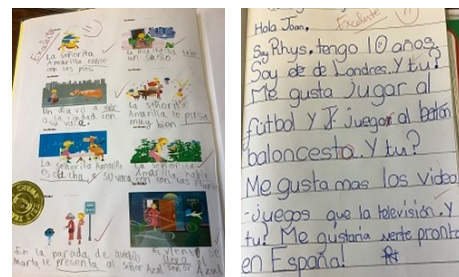 Excelente
La señorita
Amarilla corre
con los pies.
un baño.
Un día va a
a la ciudad con
vaca.
La señorita
Amarilla lo pasa
muy bien
La señorita Amarilla
escucha a su vaca
La señorita
Amarilla habla
con las
En la parada de autobús
Marta le presenta al señor Azul
El viento se
señor Azul
Hola Joan,
Excelente
Soy Rhys, tengo 10 años
Soy de de Londres. Y tu?
Me gusta jugar al
fútbol y jugar al balon
baloncesto. Y tu?
Me gusta mas los video
-juegos que la televisión. Y
tu? Me gustaria verte pronto
en España!